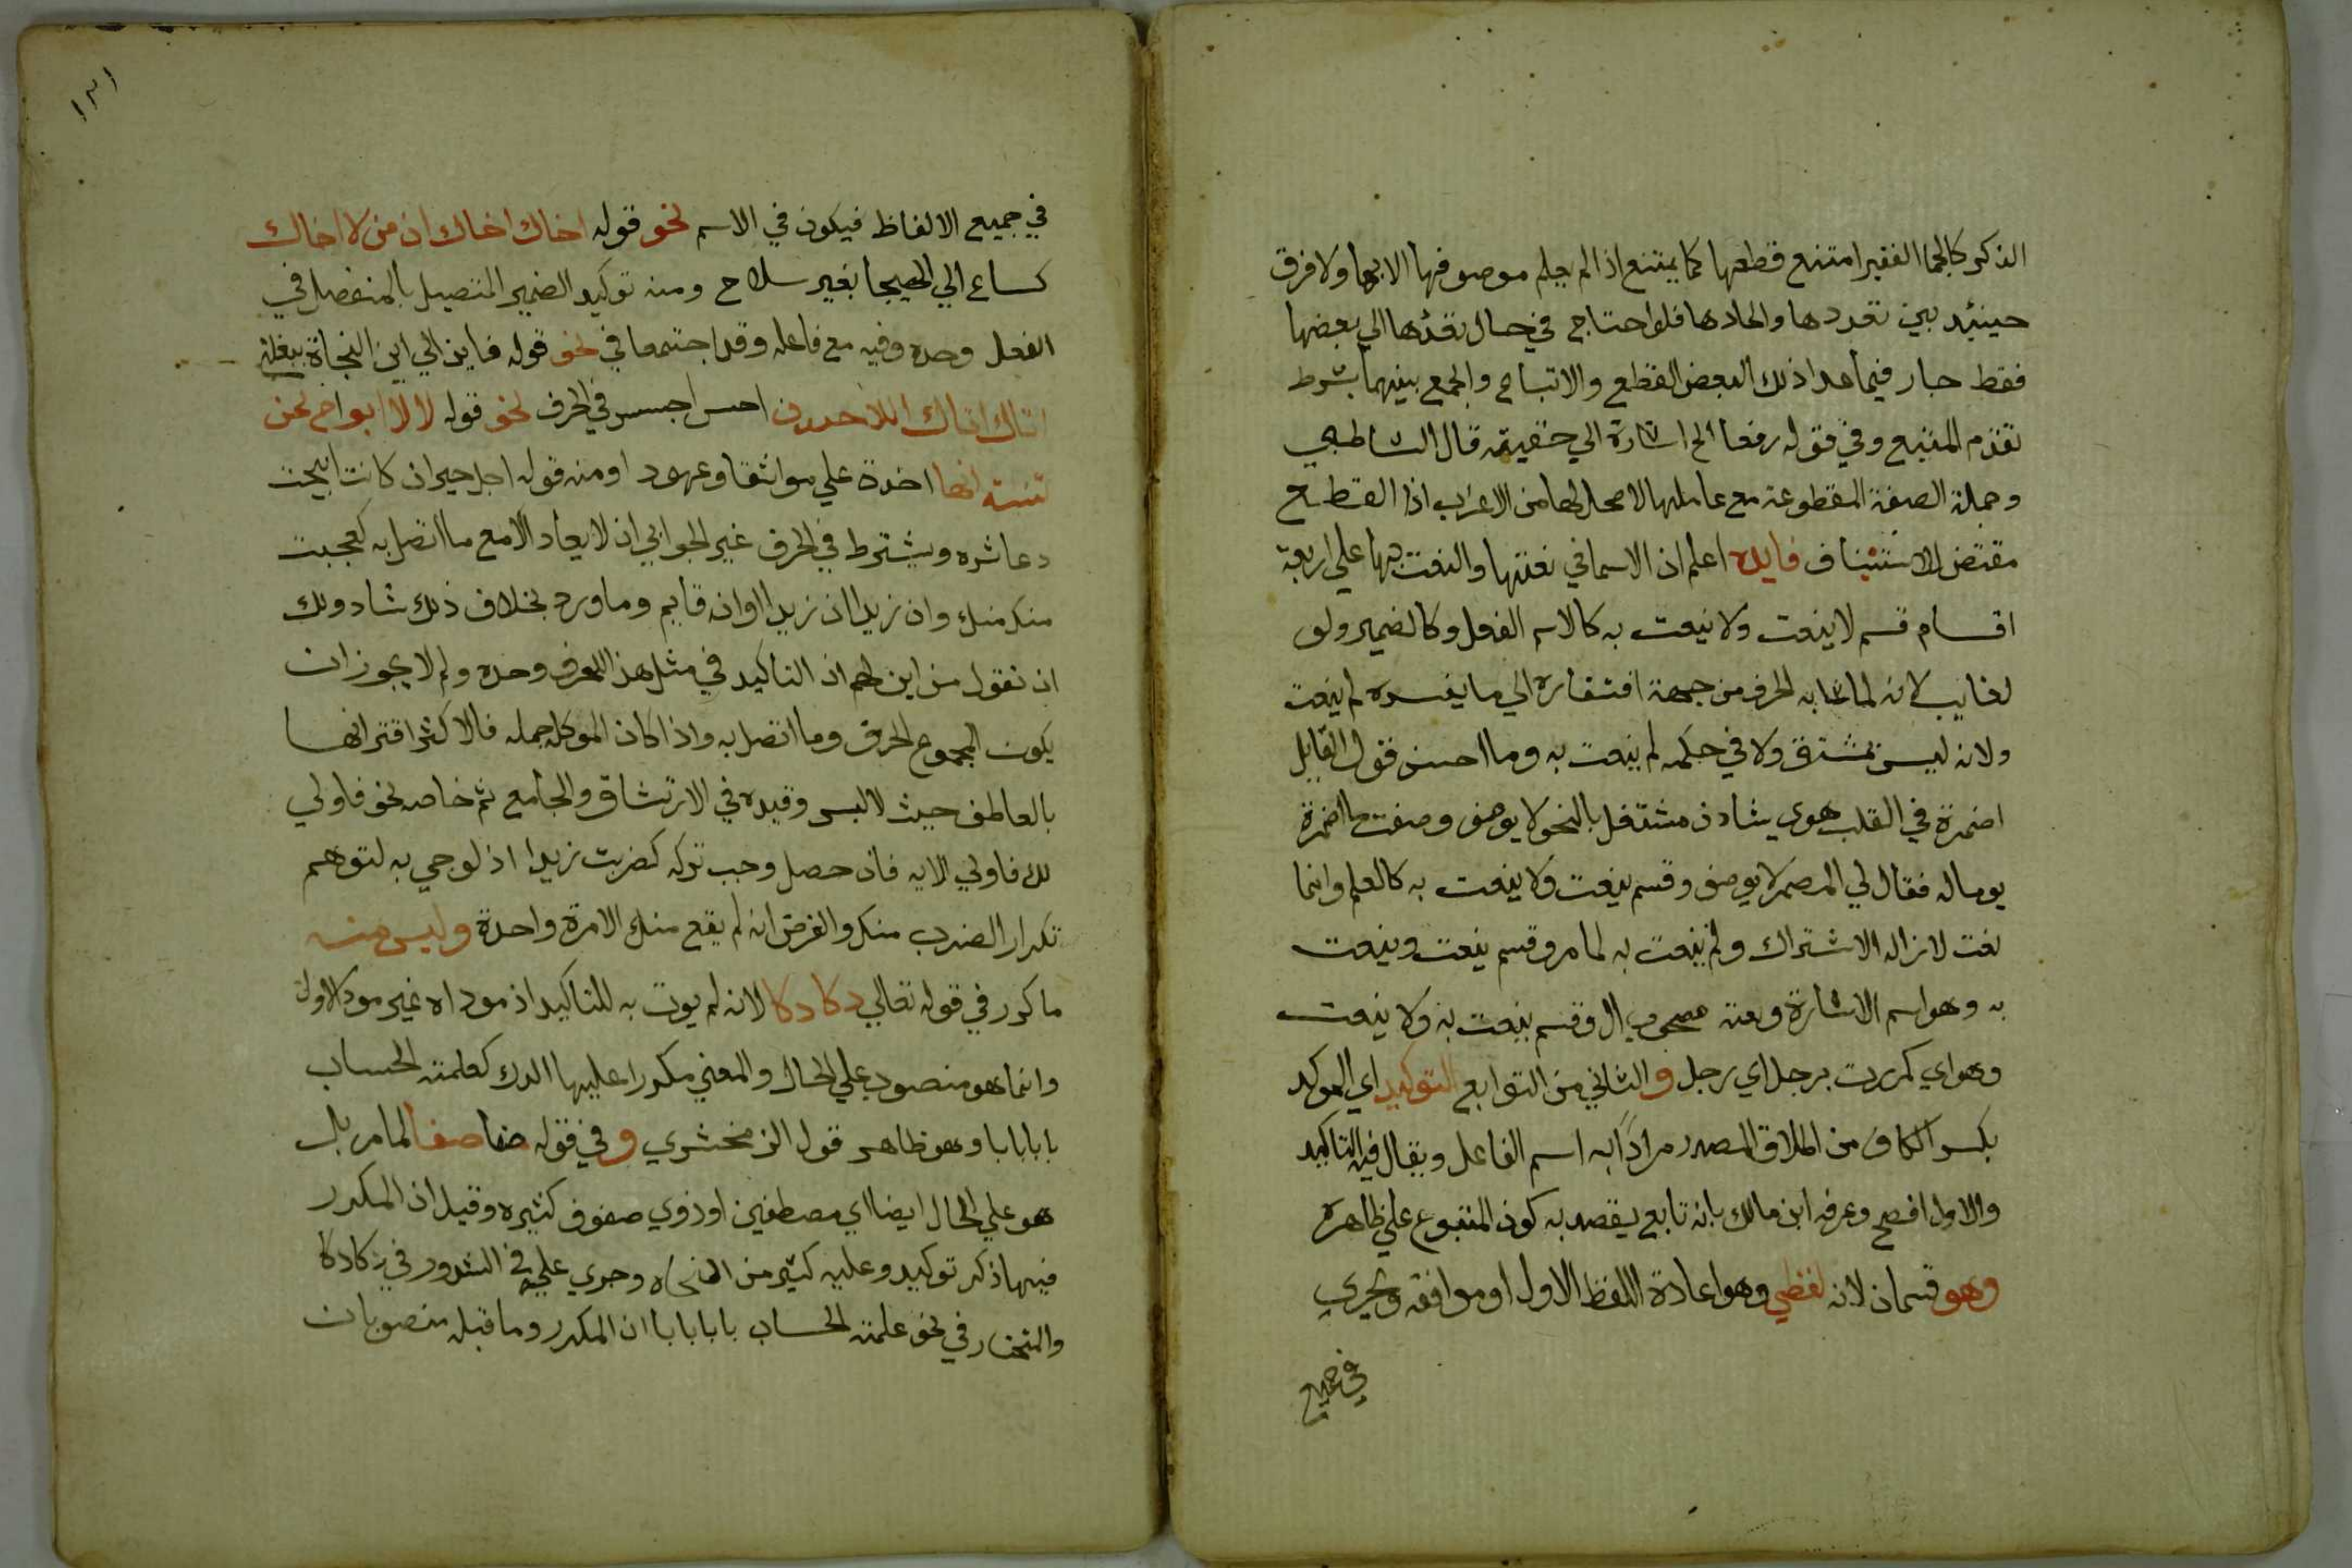 الذكر كالجما الفقير امتنع قطعها كما يمتنع اذا لم يعلم موصوفها الا بها ولا فرق
حينئيد بين تعددها واتحادها فلو احتاج في حال تعددها الي بعضها
فقط جار فيما عدا ذلك البعض القطع والاتباع والجمع بينهما بشرط
تقدم المتبع وفي قوله رفعا الخ اشارة الي حقيقته قال الشاطبي
وجملة الصفة المقطوعة مع عاملها لا محل لها من الاعراب اذا القطع
مقتض للاستئناف فايده اعلم ان الاسما في نعتها والنعت بها علي اربعة
اقسام قسم لا ينعت ولا ينعت به كالاسم الفعل وكالضمير ولو
لغايب لانه لما شابه الحرف من جهة افتقاره الي ما يفسره لم ينعت
ولانه ليس بمشتق ولا في حكمه لم ينعت به وما احسن قول القايل
اضمرة في القلب هوي شادن مشتغل بالنحو لا يوصف وصفت ما اضمرة
يوما له فقال لي المضمر لا يوصف وقسم ينعت ولا ينعت به كالعلم وانما
نعت لازاله الاشتراك ولم ينعت به لما مر وقسم ينعت وينعت
به وهو اسم الاشارة ونعته مصحوب ال وقسم ينعت به ولا ينعت
وهو اي كمررت برجل اي رجل والثاني من التوابع التوكيد اي الموكد
بكسر الكاف من اطلاق المصدر مرادًا به اسم الفاعل ويقال فيه التاكيد
والاول افصح وعرفه ابن مالك بانه تابع يقصد به كون المتبوع علي ظاهره
وهو قسمان لانه لفظي وهو اعادة اللفظ الاول او موافقه ويجري
في جميع
١٣١
في جميع الالفاظ فيكون في الاسم نحو قوله اخاك اخاك ان من لا اخاك
كساع الي الهيجا بغير سلاح ومنه توكيد الضمير المتصيل بالمنفصل في
الفعل وحده وفيه مع فاعله وقد اجتمعا في نحو قوله فاين الي اين النجاة ببغلتي
اتاك اتاك اللاحقون احبس احبس في الحرف نحو قوله لا لا ابوا
انها اخذة علي مواثقا وعهودا ومنه قوله اجل جير ان كانت ابيحت
دعاثره ويشترط في الحرف غير الجوابي ان لا يعاد الا مع ما اتصل به كعجبت
منك منك وان زيدا ان زيدا او انه قايم وما ورد بخلاف ذلك شاد ولك
ان تقول من اين لهم ان التاكيد في مثل هذا للحرف وحده ولم لا يجوز ان
يكون لمجموع الحرف وما اتصل به واذا كان الموكد جمله فالاكثر اقترانها
بالعاطف حيث لا لبس وقيده في الارتشاق والجامع بثم خاصه نحو فاولي
لك فاولي الايه فان حصل وجب تركه كضربت زيدا اذ لو جي به لتوهم
تكرار الضرب منك والغرض انه لم يقع منك الا مرة واحدة وليس منه
ما كرر في قوله تعالي دكا دكا لانه لم يوت به للتاكيد اذ موداه غير مود الاول
وانما هو منصوب علي الحال والمعني مكررا عليها الدك كعلمته الحساب
بابا بابا وهو ظاهر قول الزمخشري وفي قوله صفا صفا لما مر بل
هو علي الحال ايضا اي مصطفين او ذوي صفوف كثيره وقيل ان المكرر
فيهما ذكر توكيد وعليه كثير من النحاه وجري عليه في الشدور في دكا دكا
والمختار في نحو علمته الحساب بابا بابا ان المكرر وما قبله منصوبان